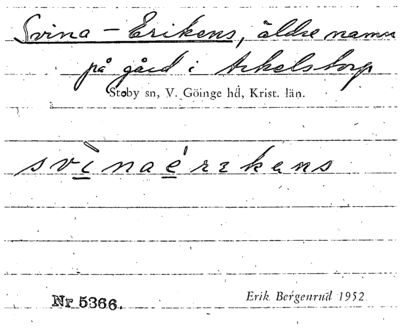 Svina-Erikens, äldre namn
på gård i Arkelstorp
Stoby sn, V. Göinge hd, Krist. län.
svìnaérikens
Nr 5366.
Erik Bergenrud 1952